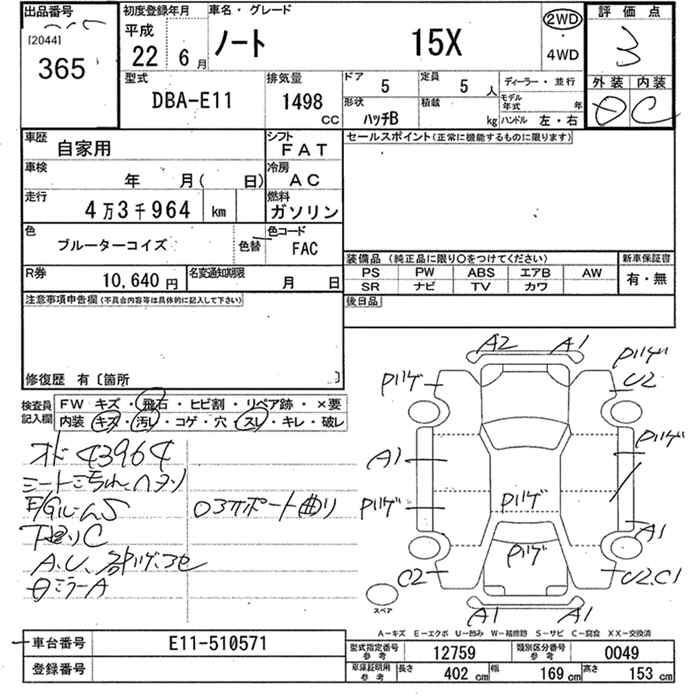 出品番号
[2044]
365
初度登録年月
平成
22 6月
車名・グレード
ノート 15X
2WD
・
4WD
評価点
3
外装 内装
D C
型式
DBA-E11
排気量
1498
CC
ドア
5
定員
5人
ディーラー・並行
モデル年式 年
形状
ハッチB
積載
kg
ハンドル 左・右
車歴
自家用
シフト
FAT
車検
年 月( 日)
冷房
AC
走行
4万3千964 km
燃料
ガソリン
色
ブルーターコイズ
色替
色コード
FAC
R券
10,640円
名変通知期限
月 日
セールスポイント(正常に機能するものに限ります)
装備品(純正品に限り○をつけてください)
PS PW ABS エアB AW
SR ナビ TV カワ
新車保証書
有・無
後日品
注意事項申告欄(不具合内容等は具体的に記入して下さい)
修復歴 有〔箇所 〕
検査員記入欄
FW キズ・飛石・ヒビ割・リペア跡・×要
内装 キズ・汚レ・コゲ・穴・スレ・キレ・破レ
オド43964
シートこちれ、ヘタリ
下廻りC
ミラーA
ポート曲り
A2 A1
Pハゲ
Pハゲ U2
A1 Pハゲ
Pハゲ Pハゲ
A1
Pハゲ
C2 U2.C1
A1 A1
スペア
A－キズ E－エクボ U－凹み W－補修跡 S－サビ C－腐食 XX－交換済
車台番号 E11-510571
登録番号
型式指定番号 参考 12759
類別区分番号 参考 0049
車庫証明用 参考 長さ 402cm 幅 169cm 高さ 153cm